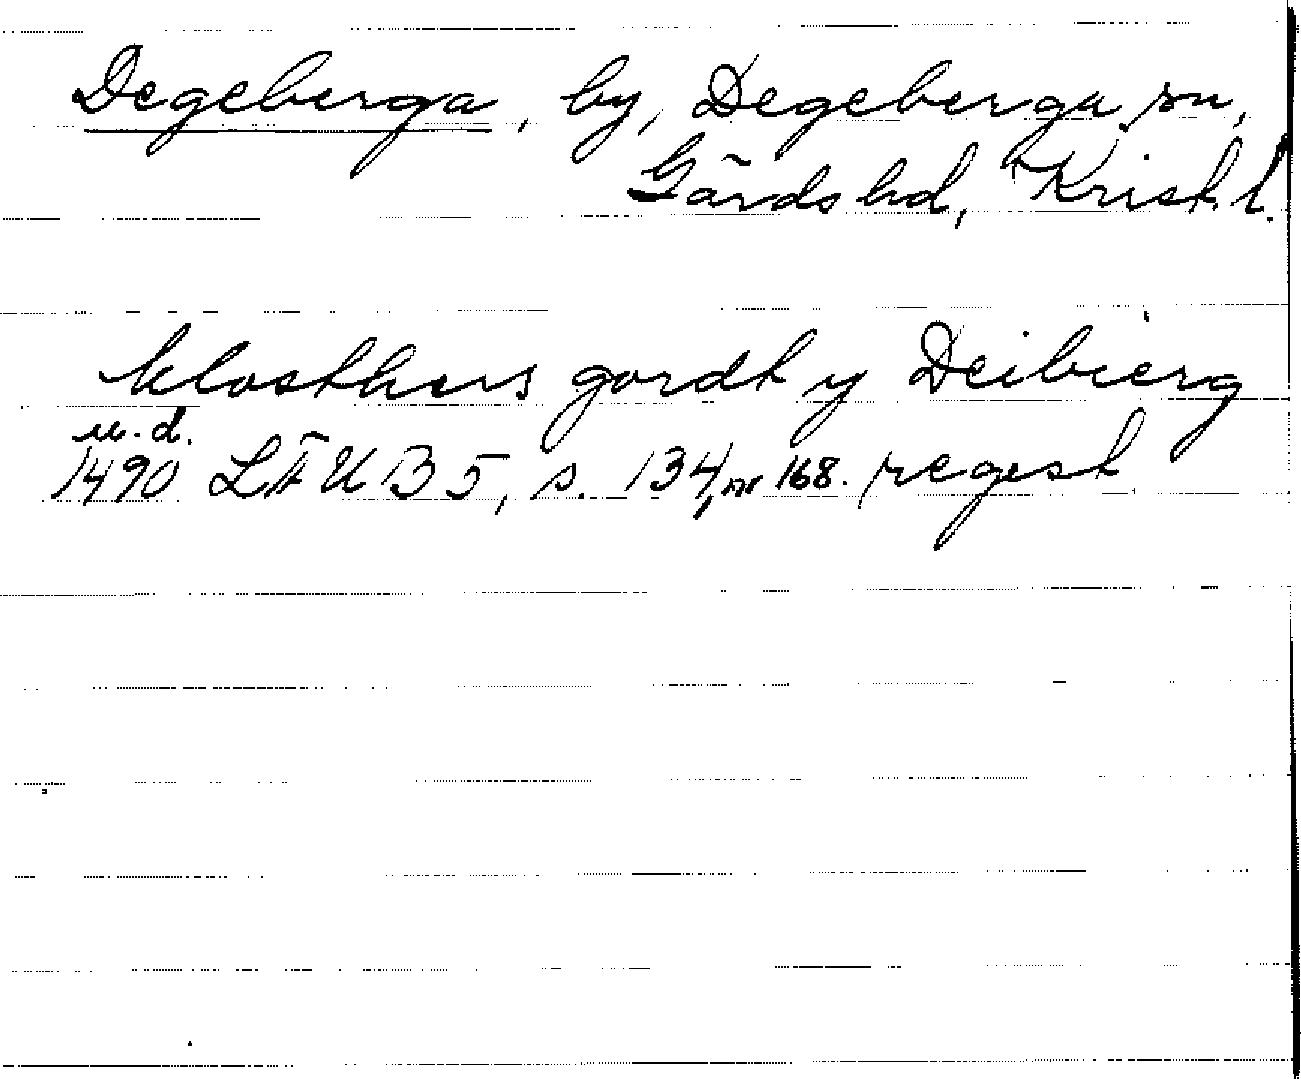 Degeberga, by, Degeberga sn,
Gärds hd, Krist. l.
klosthers gordt y Deibierg
u.d.
1490 LÄUB 5, s. 134, nr 168. regest